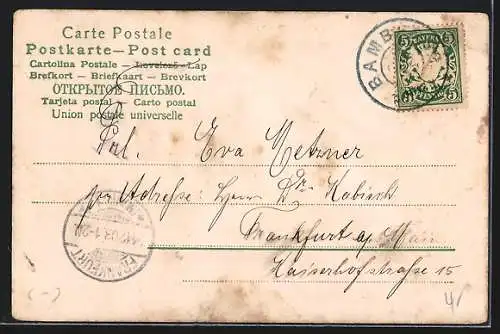 Carte Postale
Postkarte — Post card
Cartolina Postale — Levelező-Lap
Brefkort — Briefkaart — Brevkort
ОТКРЫТОЕ ПИСЬМО.
Tarjeta postal — Carto postal
Union postale universelle
BAMB
BAYERN
5 5
Frl. Eva Metzner
per Adresse: Herrn Dr. Kobisch
Frankfurt a/ Main
Kaiserhofstrasse 15
FRANKFURT
(-)